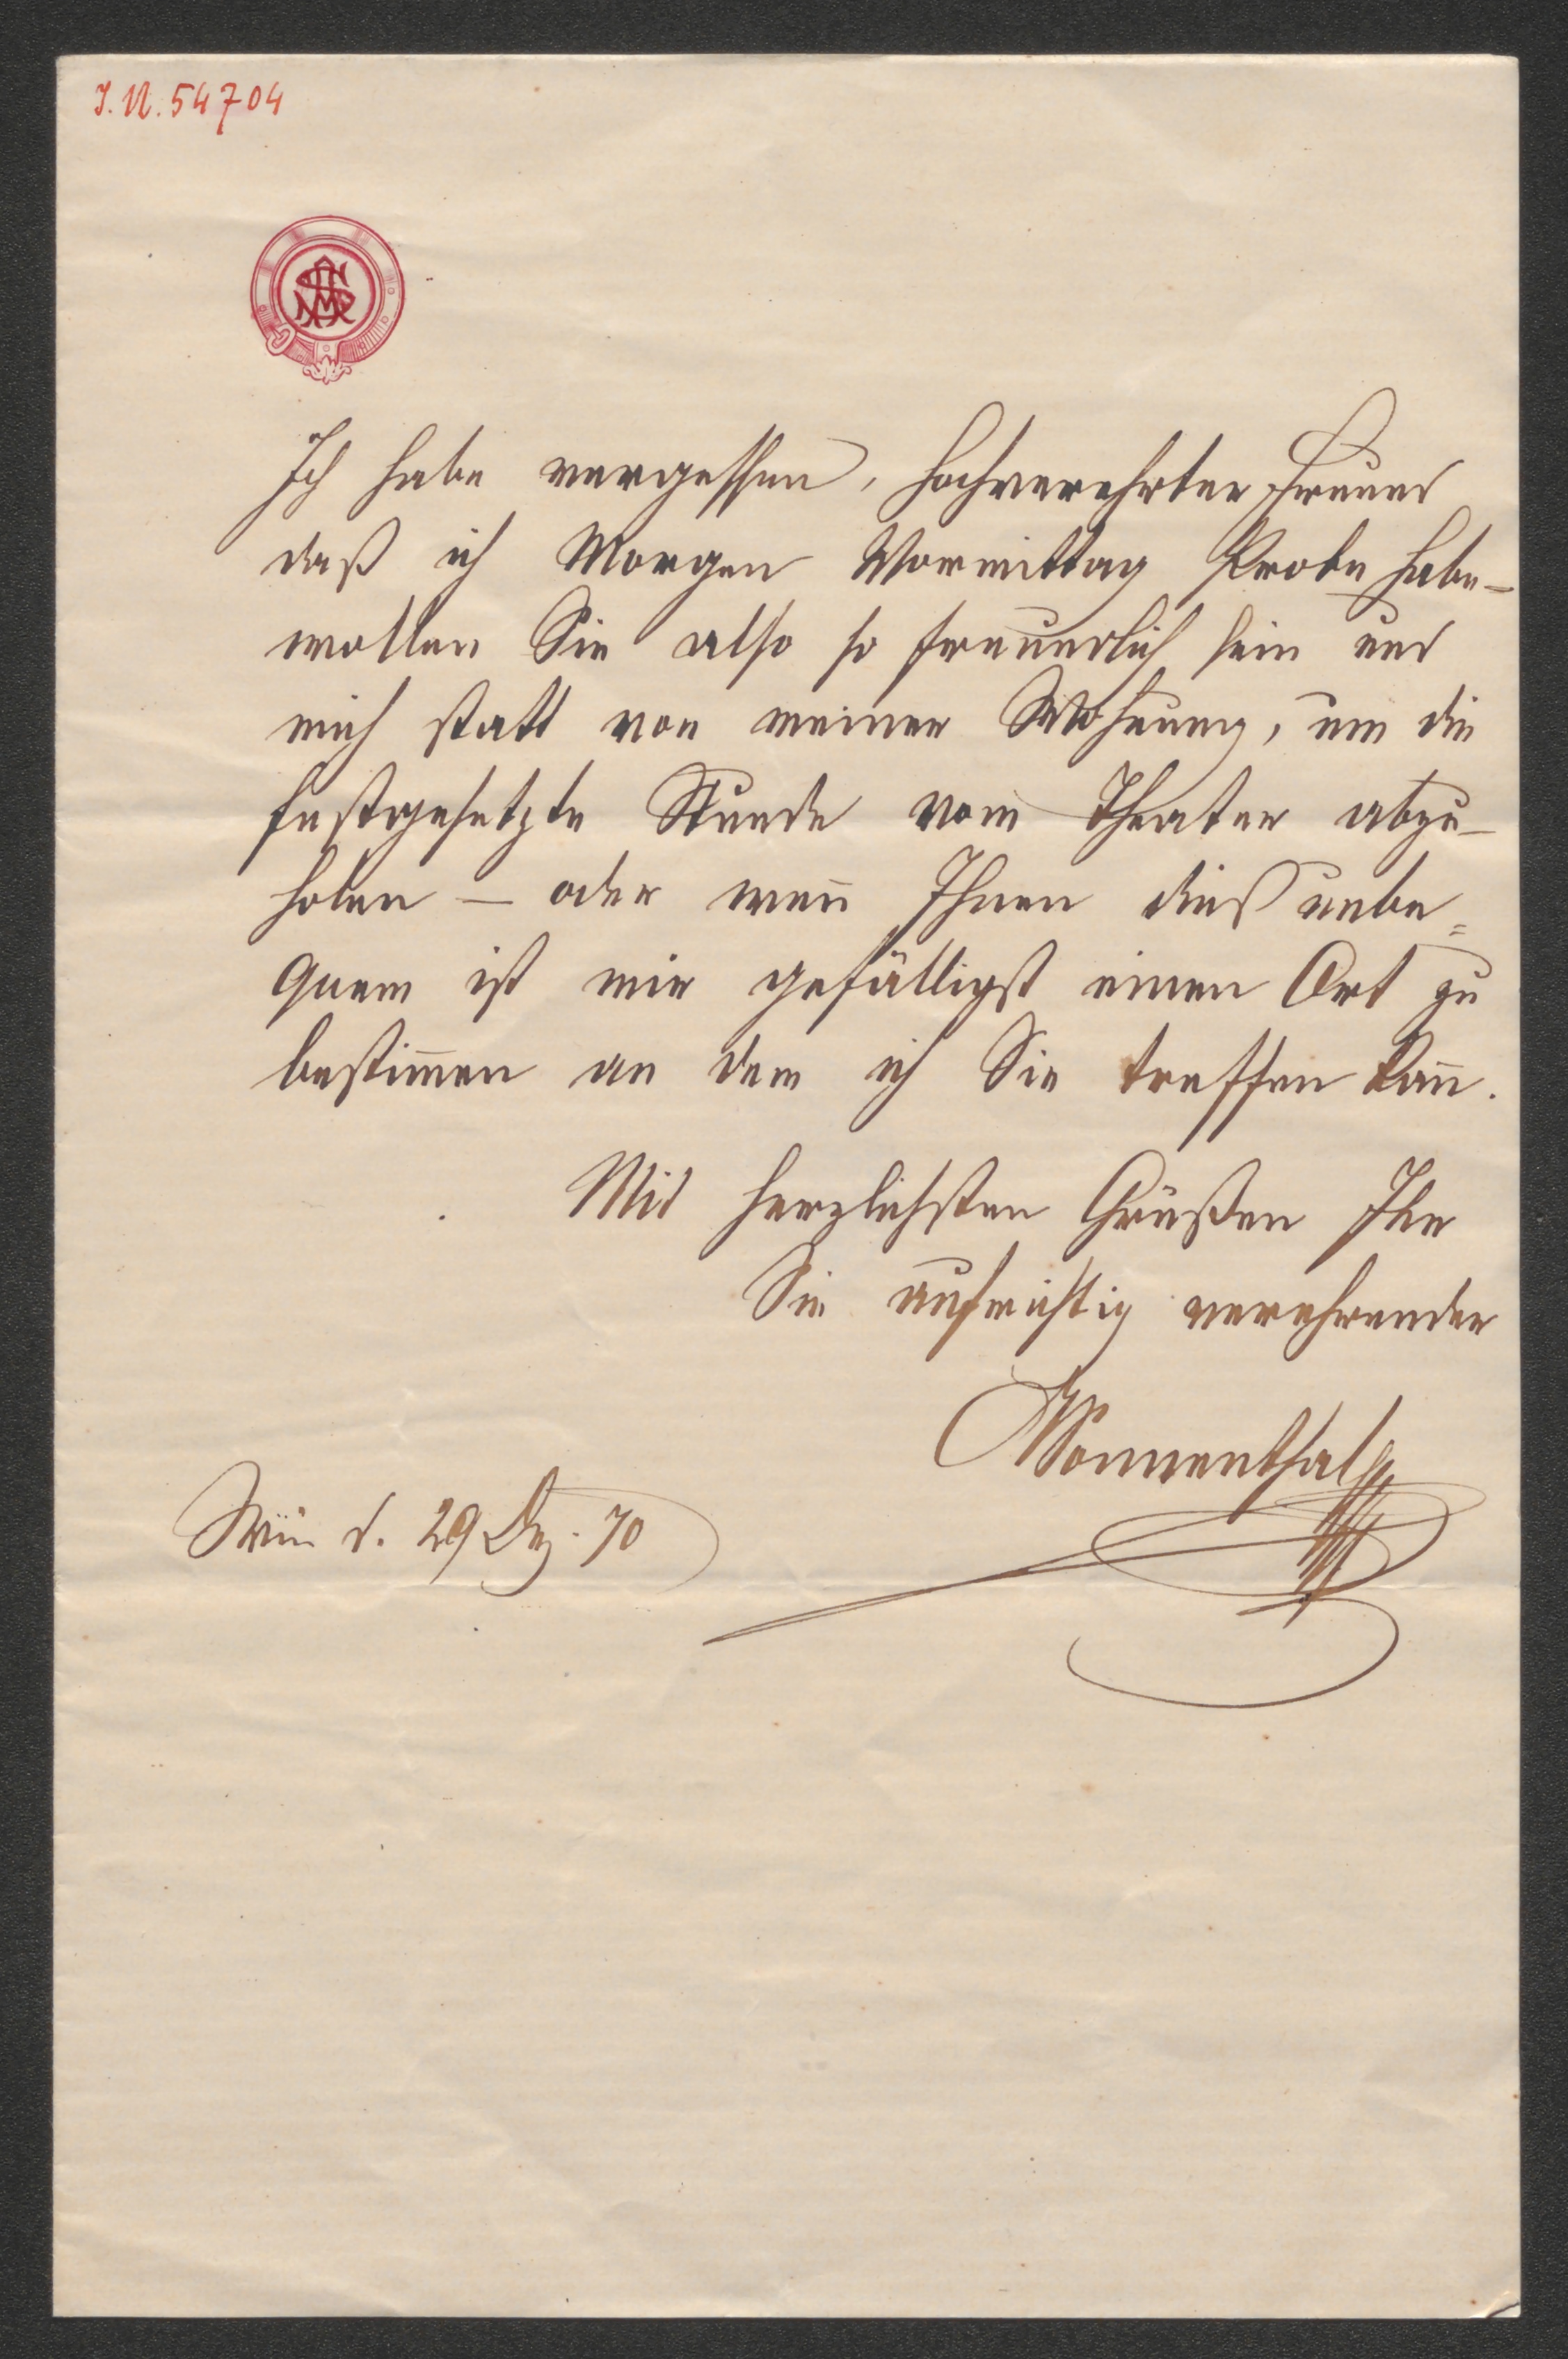 I. N. 54704
Ich habe vergessen, hochverehrter Freund
daß ich Morgen Vormittag Probe habe –
wollen Sie also so freundlich sein und
mich statt von meiner Wohnung, um die
festgesetzte Stunde vom Theater abzu-
holen – oder wen̄ Ihnen dieß unbe=
quem ist mir gefälligst einen Ort zu
bestim̄en an dem ich Sie treffen kan̄.
Mit herzlichsten Grüßen Ihr
Sie aufrichtig verehrender
ASonnenthal
Wien d. 29 Dez. 70